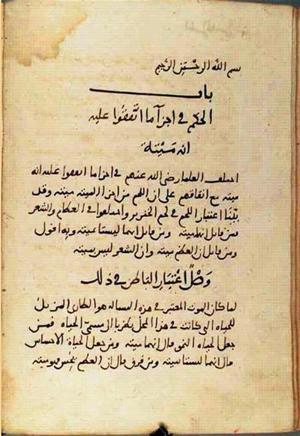 بسم الله الرحمن الرحيم
باب
الحكم في اجزآ ما اتفقوا عليه
انه ميتة
اختلف العلما رضي الله عنهم في اجزا ما اتفقوا عليه انه
ميته مع اتفاقهم على ان اللحم من اجزا الميته ميته وقد
بينا اعتبار اللحم في لحم الخنزير واختلفوا في العظام والشعر
فمن قايل انهما ميته ومن قايل انهما ليستا ميته وبه اقول
ومن قايل ان العظم ميته وان الشعر ليس بميته
وصل اعتبار الناظر في ذلك
لما كان الموت المعتبر في هذه المساله هو الطاري المزيل
للحياه التي كانت في هذا المحل نظرنا الى مسمى الحياه فمن
جعل الحياه النمو قال انهما ميته ومن جعل الحياه الاحساس
قال انهما ليستا ميته ومن فرق قال ان العظم يحس فهو ميته